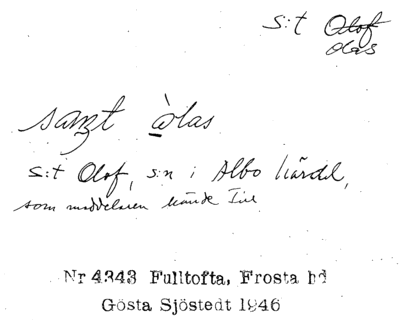 S:t Olof
Olas
sanzt òlas
S:t Olof, s:n i Albo härad,
som meddelaren kände till
Nr 4343 Fulltofta, Frosta hd
Gösta Sjöstedt 1946